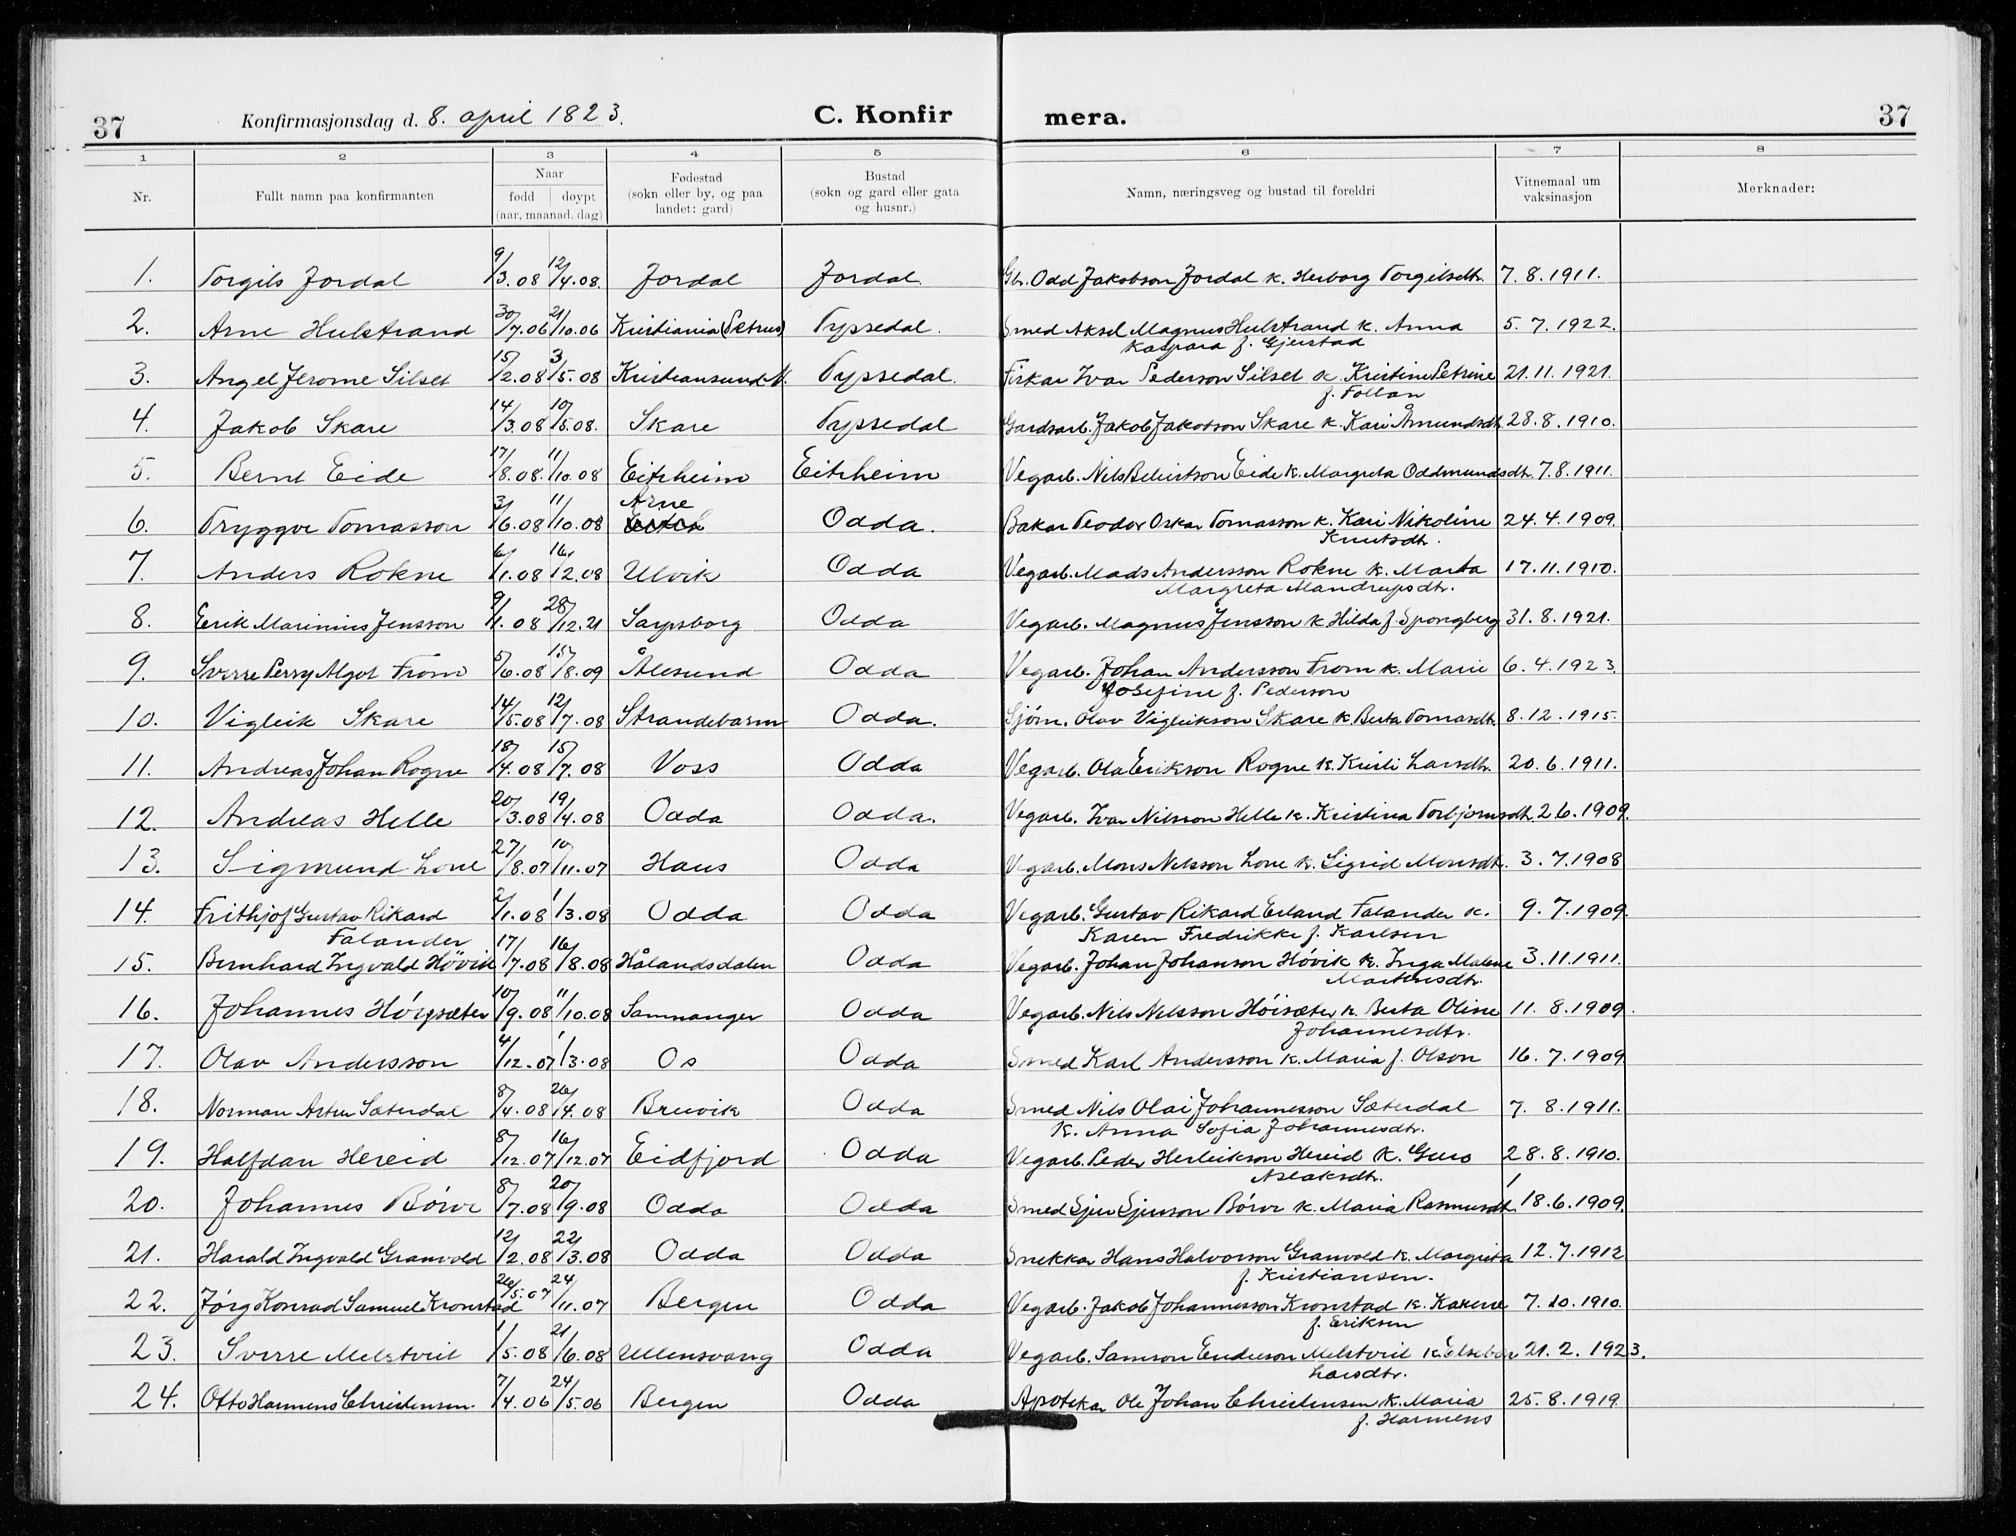 37 Konfirmasjonsdag d. 8. april 1823. C. Konfir mera. 37
1 2 3 4 5 6 7 8
Nr. Fullt namn paa konfirmanten Naar fødd døypt (aar, maanad, dag) Fødestad (sokn eller by, og paa landet: gard) Bustad (sokn og gard eller gata og husnr.) Namn, næringsveg og bustad til foreldri Vitnemaal um vaksinasjon Merknader:
1. Torgils Jordal 9/3.08 12/4.08. Jordal Jordal Gbr. Odd Jakobson Jordal k. Herborg Torgilsdtr. 7.8.1911.
2. Arne Hulstrand 30/7.06 21/10.06 Kristiania (Petrus) Tyssedal. Smed Aksel Magnus Hulstrand k. Anna 5.7.1922.
Kaspara f. Gjerstad
3. Angel Jerome Silset 15/2.08 3/5.08 Kristiansund N. Tyssedal. Fiskar Ivar Pederson Silset k. Kristine Petrine 21.11.1921.
f. Follan
4. Jakob Skare 14/3.08 10/5.08. Skare Tyssedal Gardsarb. Jakob Jakobson Skare k. Kari Åmundsdtr. 28.8.1910.
5. Bernt Eide 17/8.08. 11/10.08 Eitrheim Eitrheim Vegarb. Nils Berintson Eide k. Margreta Oddmundsdtr. 7.8.1911.
Arne
6. Tryggve Tomasson 3/6.08 11/10.08 Odda. Bakar Teodor Oskar Tomasson k. Kari Nikoline 24.4.1909.
Knutsdtr.
7. Anders Rokne 6/1.08 16/2.08 Ulvik Odda Vegarb. Mads Andersson Rokne k. Marta 17.11.1910.
Margreta Mandrupsdtr.
8. Erik Marinius Jensson 9/1.08 28/12.21 Sarpsborg Odda Vegarb. Magnus Jensson k Hilda f. Spongberg 31.8.1921.
9. Sverre Perry Algot From 5/6.08 15/8.09 Ålesund Odda Vegarb. Johan Andersson From k. Marie 6.4.1923
Josefine f. Pederson
10. Vigleik Skare 14/5.08 12/7.08 Strandebarm Odda. Sjøm. Olav Vigleikson Skare k Berta Tomasdtr. 8.12.1915.
11. Andreas Johan Rogne 18/4.08 15/7.08 Voss Odda Vegarb. Ola Erikson Rogne k. Kristi Larsdtr. 20.6.1911.
12. Andreas Helle 20/3.08 19/4.08 Odda Odda. Vegarb. Ivar Nilsson Helle k. Kristina Torbjørnsdtr. 2.6.1909.
13. Sigmund Lone 27/8.07 10/11.07 Haus Odda Vegarb. Mons Nilsson Lone k. Sigrid Monsdtr. 3.7.1908
14. Frithjof Gustav Rikard 2/1.08 1/3.08 Odda Odda Vegarb. Gustav Rikard Erland Falander k. 9.7.1909.
Falander Karen Fredrikke f. Karlsen
15. Bernhard Ingvald Hövik 17/7.08 16/8.08 Hålandsdalen Odda Vegarb. Johan Johanson Hóvik k. Inga Malene 3.11.1911.
Martinsdtr.
16. Johannes Hóysæter 10/9.08 11/10.08 Samnanger Odda Vegarb. Nils Nilsson Hóisæter k. Berta Oline 11.8.1909.
Johannesdtr.
17. Olav Andersson 4/12.07 1/3.08 Os Odda Smed Karl Andersson k. Maria f. Olson 16.7.1909
18. Norman Artur Sæterdal 8/4.08 26/4.08 Bruvik Odda Smed Nils Olai Johannesson Sæterdal 7.8.1911.
k. Anna Sofia Johannesdtr.
19. Halfdan Hereid 8/12.07 16/12.07 Eidfjord Odda Vegarb. Peder Herleikson Hereid k. Guro 28.8.1910.
Aslaksdtr.
20. Johannes Bórve 8/7.08 20/9.08 Odda Odda Smed Sjur Sjurson Bórve k. Maria Rasmusdtr. 18.6.1909.
21. Harald Ingvald Granvold 12/2.08 22/3.08 Odda Odda Snikkar Hans Halvorson Granvold k. Margrita 12.7.1912
f. Kristiansen.
22. Jørg Konrad Samuel Kronstad 26/5.07 24/11.07 Bergen Odda Vegarb. Jakob Johannesson Kronstad k. Karene 7.10.1910.
f. Eriksen
23. Sverre Melstveit 1/5.08 21/6.08 Ullensvang Odda Vegarb. Samson Enderson Melstveit k. Elsebar 21.2.1923.
Larsdtr.
24. Otto Harmens Christensen. 7/4.06 24/5.06 Bergen Odda Apotekar Ole Johan Christensen k. Maria 25.8.1919.
f. Harmens